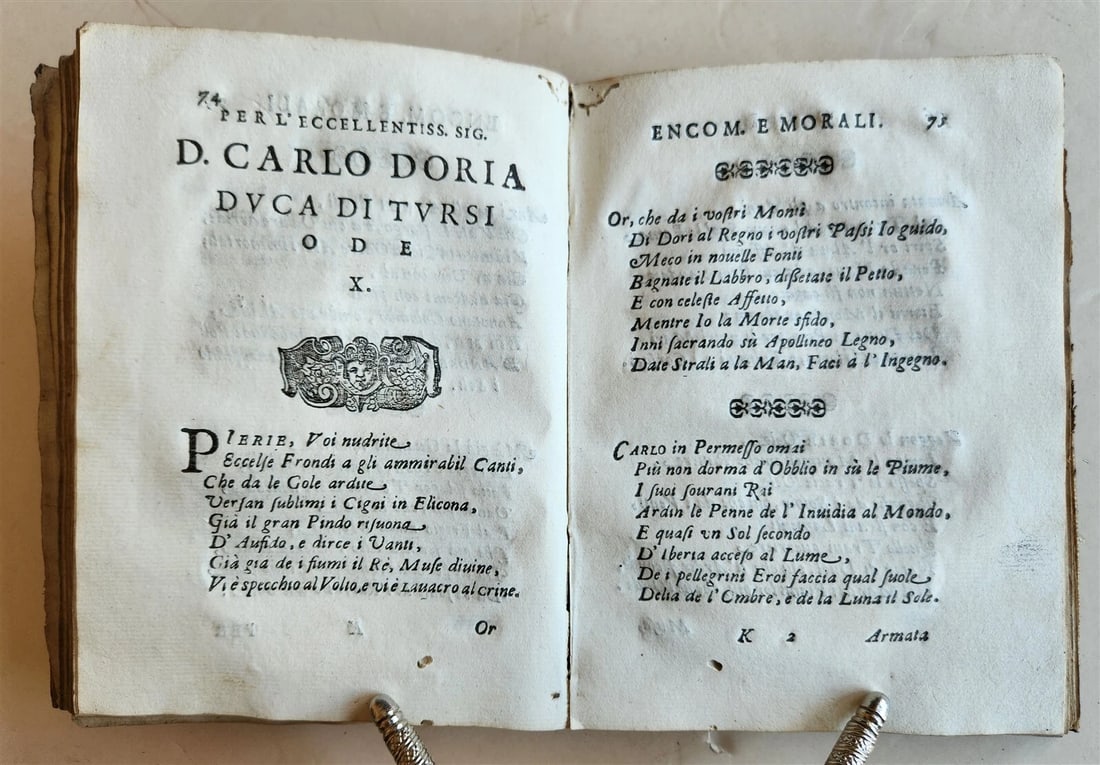 74
PER L'ECCELLENTISS. SIG.
D. CARLO DORIA
DVCA DI TVRSI
ODE
X.
PIERIE, Voi nudrite
Eccelse Frondi a gli ammirabil Canti,
Che da le Gole ardite
Versan sublimi i Cigni in Elicona,
Già il gran Pindo risuona
D' Aufido, e dirce i Vanti,
Già gia de i fiumi il Rè, Muse diuine,
Vi è specchio al Volto, e vi è Lauacro al crine.
Or
ENCOM. E MORALI. 75
Or, che da i vostri Monti
Di Dori al Regno i vostri Passi Io guido,
Meco in nouelle Fonti
Bagnate il Labbro, dissetate il Petto,
E con celeste Affetto,
Mentre Io la Morte sfido,
Inni sacrando sù Apollineo Legno,
Date Strali a la Man, Faci à l' Ingegno.
CARLO in Permesso omai
Più non dorma d' Obblio in sù le Piume,
I suoi sourani Rai
Ardin le Penne de l' Inuidia al Mondo,
E quasi vn Sol secondo
D' Iberia acceso al Lume,
De i pellegrini Eroi faccia qual suole
Delia de l' Ombre, e de la Luna il Sole.
K 2 Armata